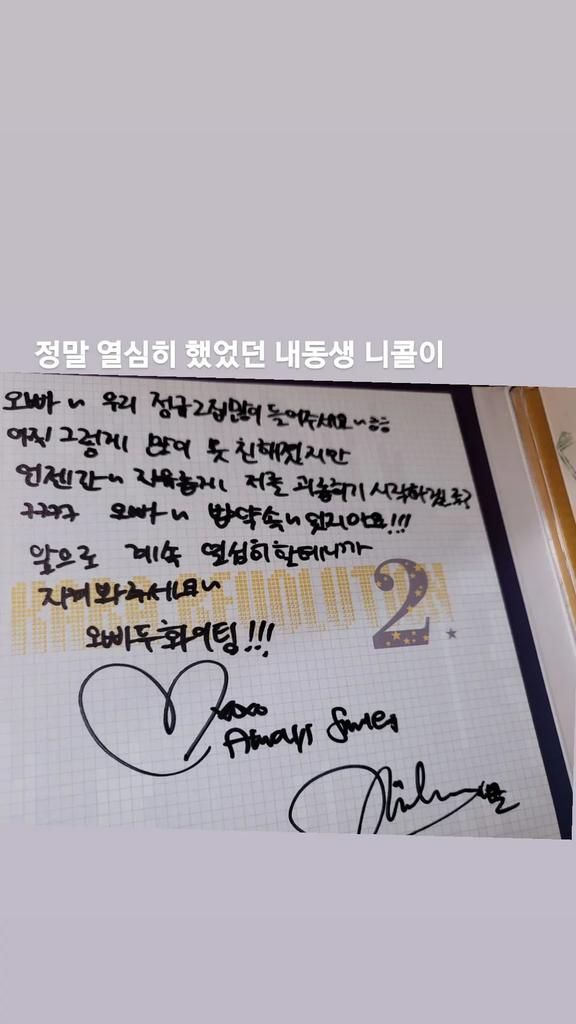 정말 열심히 했었던 내동생 니콜이
오빠~ 우리 정규2집 많이 들어주세요~
아직 그렇게 많이 못 친해졌지만
언젠간~ 저를 괴롭히기 시작하겠죠?
ㅋㅋㅋㅋ 오빠~ 밥약속~ 잊지마요!!!
앞으로 계속 열심히 할테니까
지켜봐주세요~
오빠두 화이팅!!!
KARA REVOLUTION 2
xoxo
Always Smiles